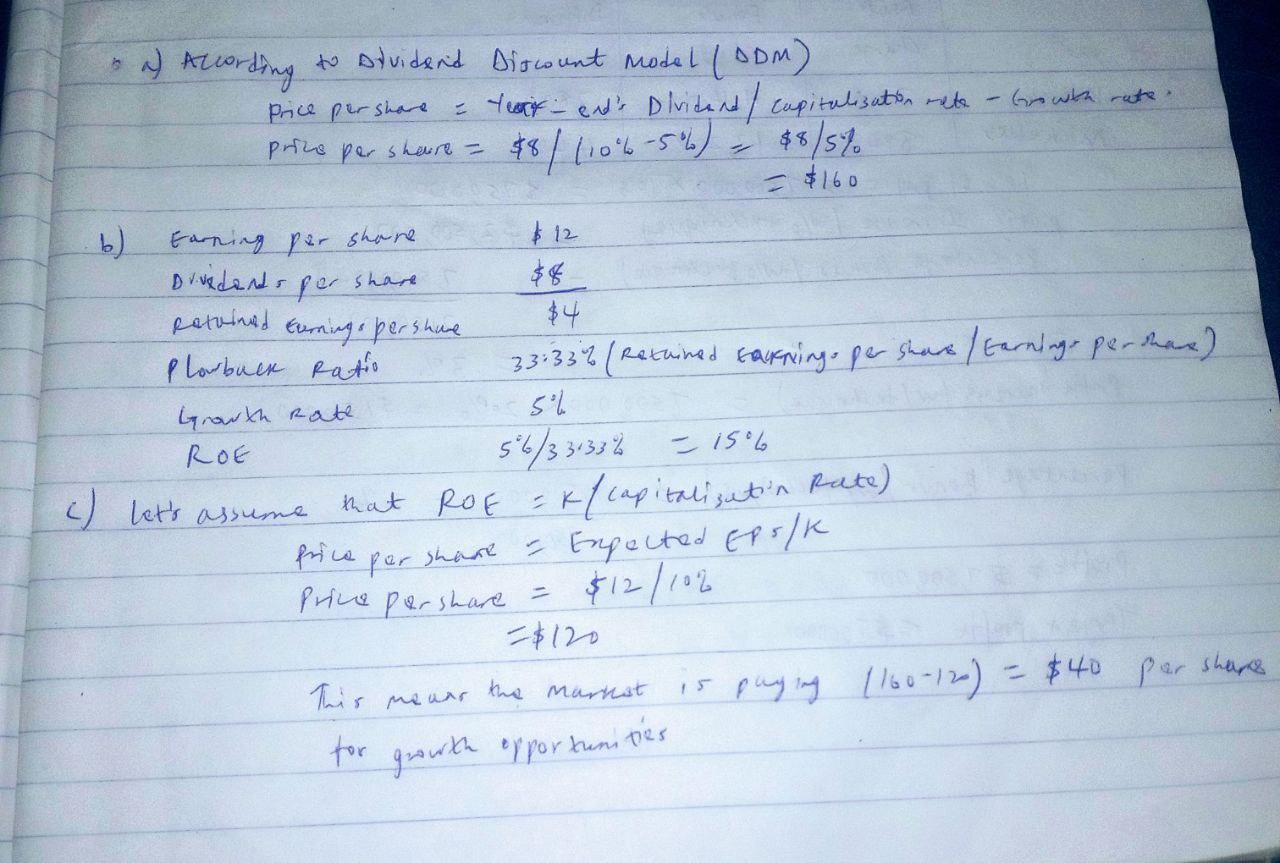 a) According to Dividend Discount Model (DDM)
Price per share = Year-end's Dividend / Capitalisation rate - Growth rate.
Price per share = $8 / (10% - 5%) = $8/5%
= $160
b) Earning per share $12
Dividends per share $8
Retained Earnings per share $4
Plowback Ratio 33.33% (Retained Earnings per share / Earnings per share)
Growth Rate 5%
ROE 5%/33.33% = 15%
c) Let's assume that ROE = K (Capitalisation Rate)
Price per share = Expected EPS/K
Price per share = $12/10%
= $120
This means the market is paying (160-120) = $40 per share
for growth opportunities